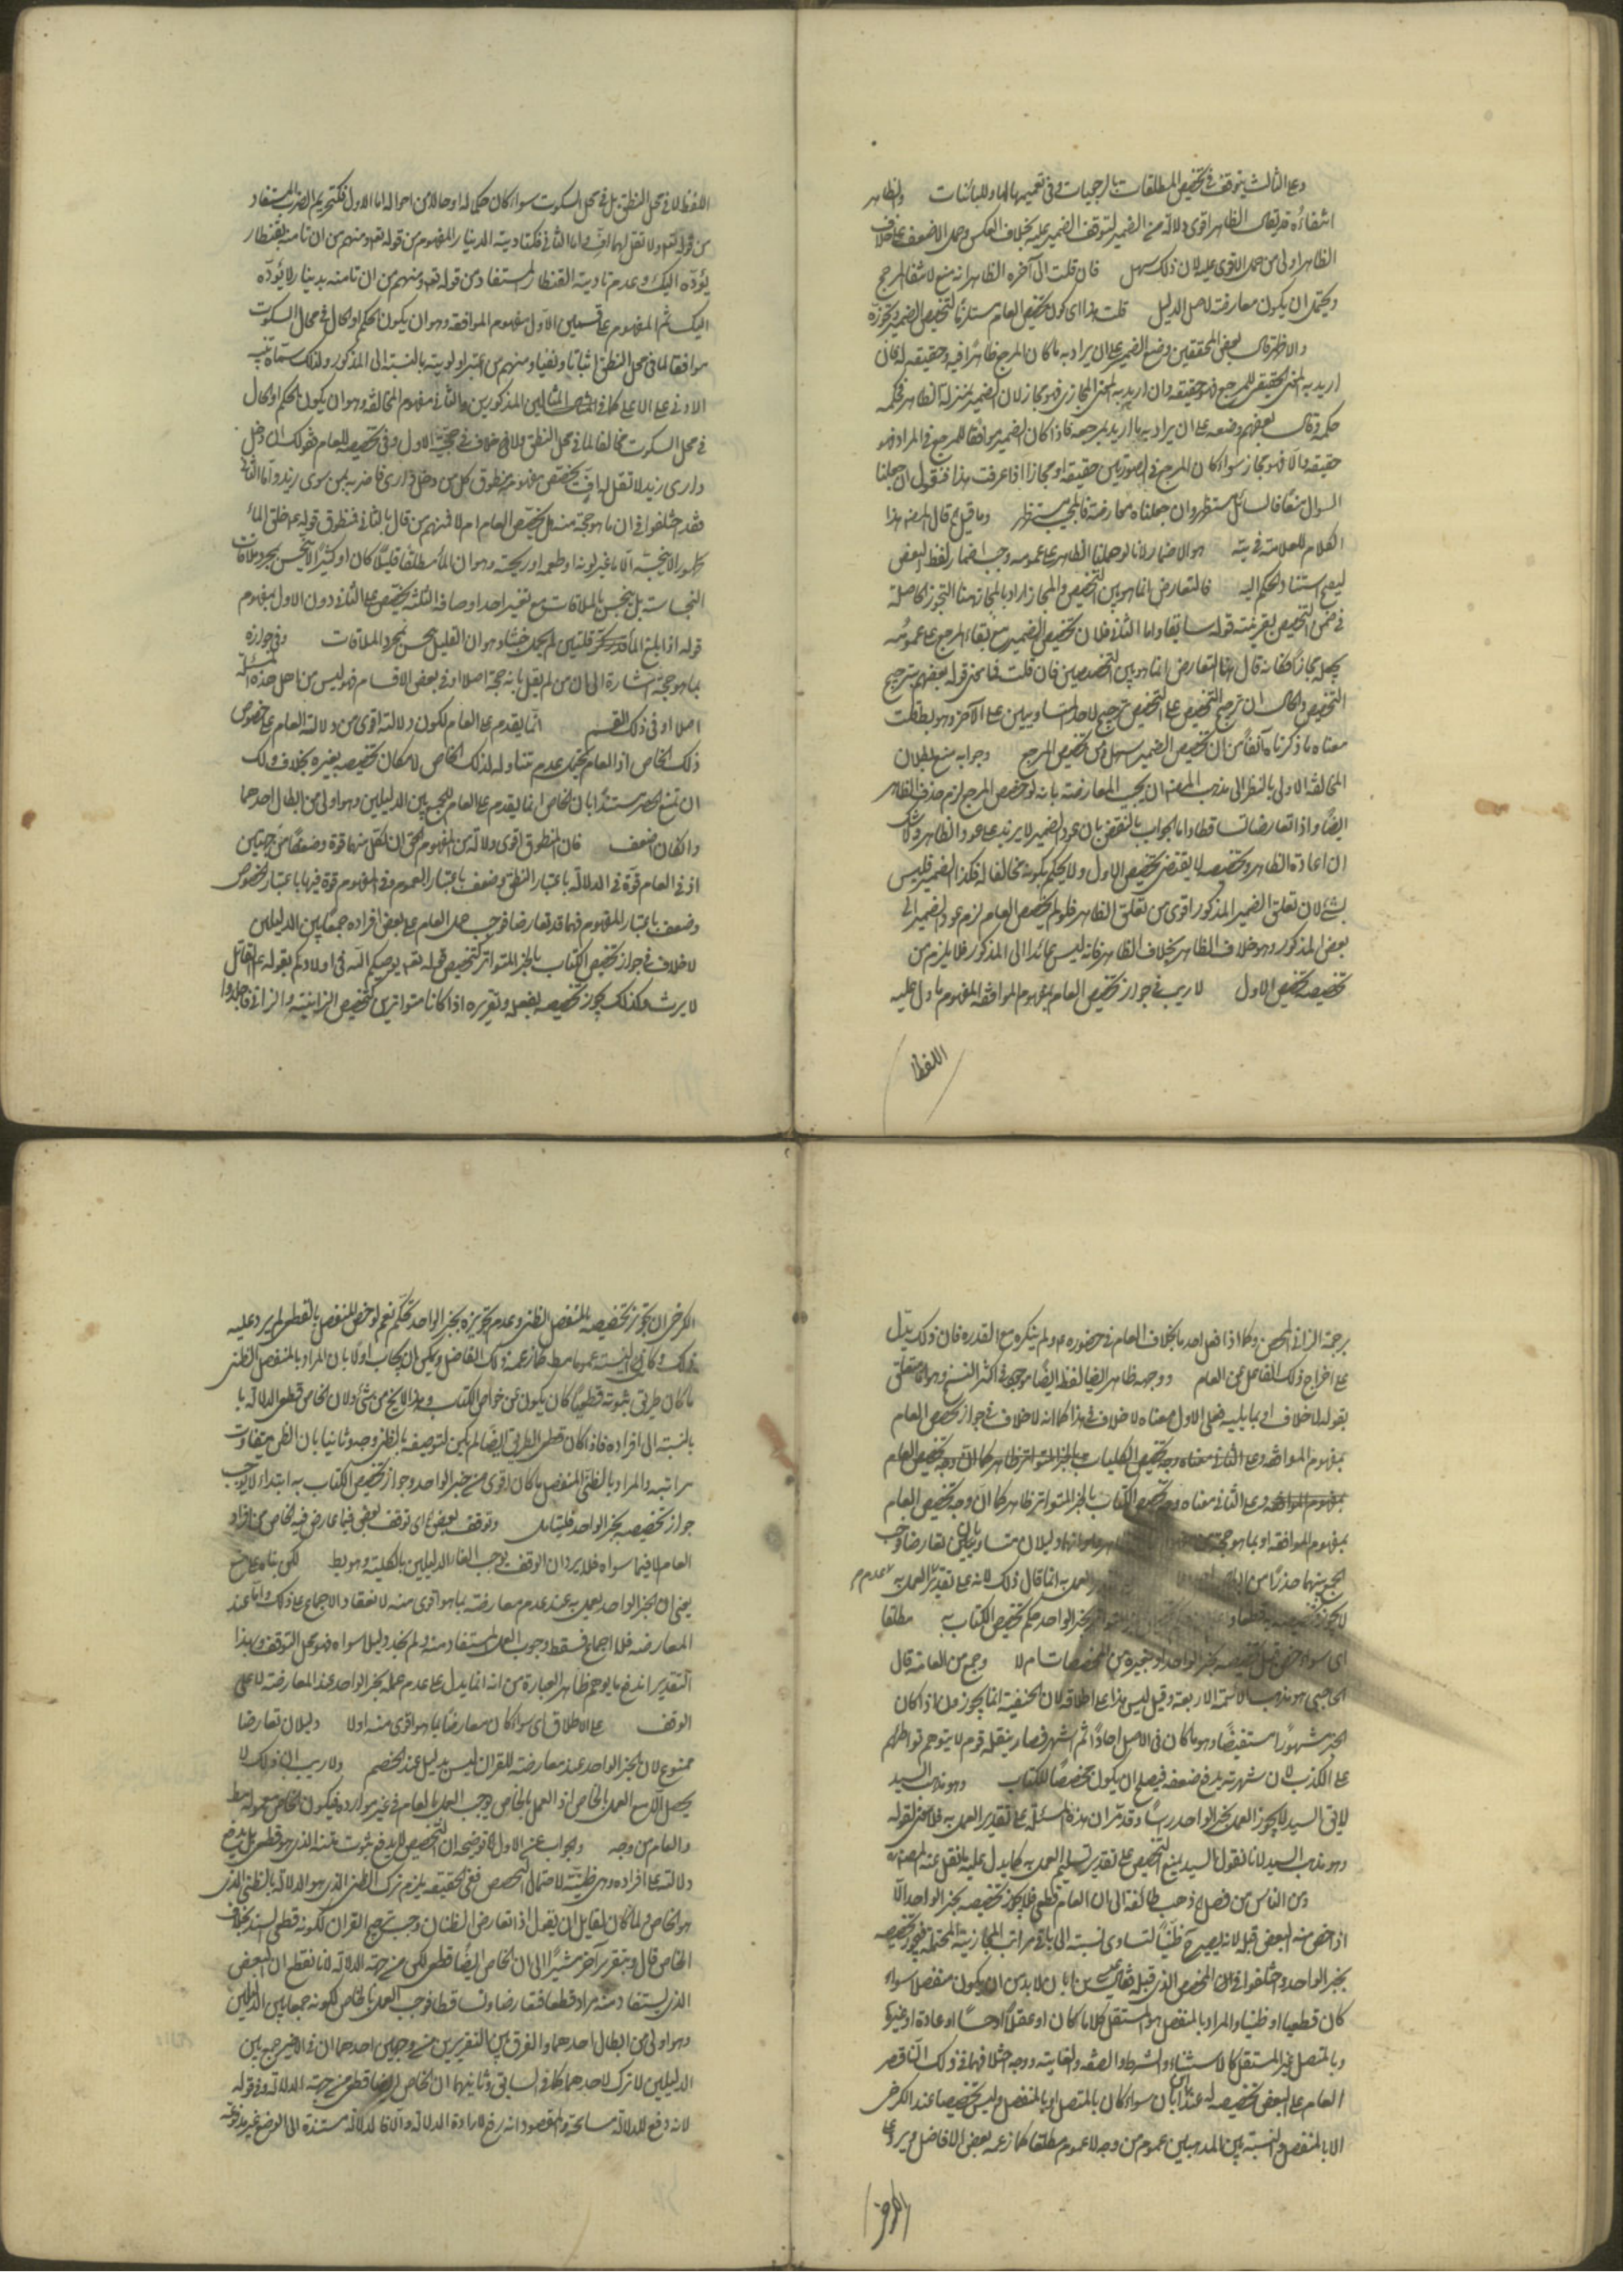 وعلى الثالث يتوقف في تخصيص المطلقات بالرجعيات وفي تعميمها لها وللبائنات والظاهر
انتفاؤه قد يقال الظاهر اقوى دلالة من الضمير لتوقف الضمير عليه بخلاف العكس وحمل الاضعف على خلاف
الظاهر اولى من حمل الاقوى عليه لان ذلك سهل فان قلت الى آخره الظاهر انه منع لانتفاء المرجح
ويحتمل ان يكون معارضة لاصل الدليل قلت هذا اى كون تخصيص العام مستلزما لتخصيص الضمير وتجوزه
والاظهر قال بعض المحققين وضع الضمير على ان يراد به ما كان المرجع ظاهرًا فيه وحقيقة له فان
اريد به المعنى الحقيقي للمرجع فهو حقيقة وان اريد به المعنى المجازى فهو مجاز لان الضمير بمنزلة الظاهر فحكمه
حكمه وقال بعضهم وضعه على ان يراد به ما اريد بمرجعه فاذا كان الضمير موافقا للمرجع في المراد فهو
حقيقة والا فهو مجاز سواء كان المرجع في الصورتين حقيقة او مجازا اذا عرفت هذا فنقول ان جعلنا
السوال منعًا فالسائل مستظهر وان جعلناه معارضة فالمجيب مستظهر وما قيل قال المصنف هذا
الكلام للعلامة في يته هو الاضمار لانا لو حملنا الظاهر على عمومه وجب اضمار لفظ البعض
ليصح استناد الحكم اليه فالتعارض انما هو بين التخصيص والمجاز اراد بالمجاز هنا التجوز الحاصلة
في ضمن التخصيص بقرينة قوله سابقا واما الثاني فلان تخصيص الضمير مع بقاء المرجع على عمومه
يجعله مجازًا فكانه قال هنا التعارض انما هو بين التخصيصين فان قلت فما معنى قوله بعضهم ترجيح
التخصيص والحال ان ترجيح التخصيص على التخصيص ترجيح لاحد المتساويين على الآخر وهو بط قلت
معناه ما ذكرناه آنفًا من ان تخصيص الضمير سهل من تخصيص المرجع وجوابه منع بطلان
المخالفة الاولى بالنظر الى مذهب المصنف ان يجيب المعارضة بانه لو خصص المرجع لزم حذف الظاهر
ايضًا واذا تعارضا تساقطا واما الجواب بالنقض بان عود الضمير لا يزيد على عود الظاهر ولا شك
ان اعادة الظاهر وتخصيصه لا يقتضى تخصيص الاول ولا يحكم بكونه مخالفا له فكذا الضمير فليس
بشئ لان تعلق الضمير المذكور اقوى من تعلق الظاهر فلو لم يخصص العام لزم عود الضمير الى
بعض المذكور وهو خلاف الظاهر بخلاف الظاهر فانه ليس عائدا الى المذكور فلا يلزم من
تخصيصه تخصيص الاول لا ريب في جواز تخصيص العام بمفهوم الموافقة المفهوم ما دل عليه
اللفظ
اللفظ لا في محل النطق بل في محل السكوت سواء كان حكما له او حالا من احواله اما الاول فكتحريم الضرب المستفاد
من قوله تعالى ولا تقل لهما اف واما الثاني فكتادية الدينار المفهوم من قوله تعه ومنهم من ان تأمنه بقنطار
يؤده اليك وعدم تأدية القنطار المستفاد من قوله تعه ومنهم من ان تأمنه بدينار لا يؤده
اليك ثم المفهوم على قسمين الاول مفهوم الموافقة وهو ان يكون الحكم او الحال في محل السكوت
موافقا لما في محل النطق اثباتا ونفيا ومنهم من اعتبر اولويته بالنسبة الى المذكور ولذلك سماه تنبيه
الادنى على الاعلى كما في المثالين المذكورين والثاني مفهوم المخالفة وهو ان يكون الحكم او الحال
في محل السكوت مخالفا لما في محل النطق فلا خلاف في حجية الاول وفي تخصيصه للعام فقولك ان دخل
دارى زيد لا تقل له اف يخصص مفهومه منطوق كل من دخل دارى فاضربه بمن سوى زيد واما الثاني
فقد اختلفوا في ان ما هو حجة منه هل يخصص العام ام لا فمنهم من قال بالثاني فمنطوق قوله عه خلق الماء
طهور لا ينجسه الا ما غير لونه او طعمه او ريحته وهو ان الماء مطلقا قليلا كان او كثيرًا لا ينجس بمجرد ملاقات
النجاسة بل ينجس بالملاقات مع تغير احد اوصافه الثلثة يخصص على الثاني دون الاول بمفهوم
قوله اذا بلغ الماء قدر قلتين لم يحمل خبثا وهو ان القليل ينجس بمجرد الملاقات وفي جوازه
بما هو حجة اشارة الى ان من لم يقل بانه حجة اصلا او في بعض الاقسام فهو ليس من اهل هذه المسئلة
اصلا او في ذلك القسم انما يقدم على العام لكون دلالته اقوى من دلالة العام على خصوص
ذلك الخاص اذ العام يحتمل عدم تناوله لذلك الخاص لامكان تخصيصه بغيره بخلاف ذلك
ان تمنع الحصر مستندًا بان الخاص انما يقدم على العام للجمع بين الدليلين وهو اولى من ابطال احدهما
وان كان اضعف فان المنطوق اقوى دلالة من المفهوم الحق ان لكل منهما قوة وضعفًا من جهتين
اذ في العام قوة في الدلالة باعتبار النطق وضعف باعتبار العموم وفي المفهوم قوة فيها باعتبار الخصوص
وضعف باعتبار المفهوم فهما قد تعارضا فوجب حمل العام على بعض افراده جمعًا بين الدليلين
لا خلاف في جواز تخصيص الكتاب بالخبر المتواتر كتخصيص قوله تعه يوصيكم الله في اولادكم بقوله عه القاتل
لا يرث وكذلك يجوز تخصيصه بفعله وتقريره اذا كانا متواترين كتخصيص الزانية والزانى فاجلدوا
برجمة الزانى المحصن وكما اذا فعل احد ما يخالف العام في حضوره عه ولم ينكره مع القدرة فان ذلك يدل
على اخراج ذلك الفاعل عن العام ووجهه ظاهر ايضا لفظ ايضًا موجود في اكثر النسخ وهو اما متعلق
بقوله لا خلاف او بما يليه فعلى الاول معناه لا خلاف في هذا كما انه لا خلاف في جواز تخصيص العام
بمفهوم الموافقة وعلى الثاني معناه وجه تخصيص الكليات بالخبر المتواتر ظاهر كما ان وجه تخصيص العام
بمفهوم الموافقة وعلى الثاني معناه وجه تخصيص الكتاب بالخبر المتواتر ظاهر كما ان وجه تخصيص العام
بمفهوم الموافقة او بما هو حجة من دليلان متساويان تعارضا وجب
الجمع بينهما حذرًا من العمل به انما قال ذلك لانه على تقدير عدم العمل به
لا يجوز تخصيصه به قطعا بخبر الواحد حكم تخصيص الكتاب به مطلقا
اى سواء خص قبل تخصيصه بخبر الواحد او بغيره من المخصصات ام لا وجمع من العامة قال
الحاجبى هو مذهب الائمة الاربعة وقيل ليس هذا على اطلاقه لان الحنفية انما يجوز عليه اذا كان
الخبر مشهورًا مستفيضًا وهو ما كان في الاصل احادًا ثم اشتهر فصار ينقله قوم لا يتوهم تواطؤهم
على الكذب لان شهرته يدفع ضعفه فيصلح ان يكون مخصصًا للكتاب وهو مذهب السيد
لا يق السيد لا يجوز العمل بخبر الواحد راسًا وقد مر ان هذه المسئلة على تقدير العمل به فلا معنى لقوله
وهو مذهب السيد لانا نقول السيد يمنع التخصيص على تقدير تسليم العمل به كما يدل عليه ما نقل عنه المصنف
ومن الناس من فصل ذهب طائفة الى ان العام قطعى فلا يجوز تخصيصه بخبر الواحد الا
اذا خص منه البعض قبله لانه يصير ح ظنيًا لتساوى نسبته الى باقي مراتب المجازية المحتملة فيجوز تخصيصه
بخبر الواحد واختلفوا في ان المخصص الذى قبله فقال عيسى بن ابان لا بد من ان يكون منفصلا سواء
كان قطعيا او ظنيا والمراد بالمنفصل هو المستقل كلاما كان او عقلًا او حسًا او عادة او غيرها
وبالمتصل غير المستقل كالاستثناء والشرط والصفة والغاية ووجه اختلافهما في ذلك ان قصر
العام على البعض تخصيصه له عند ابن ابان سواء كان بالمتصل او بالمنفصل وليس تخصيصا عند الكرخى
الا بالمنفصل والنسبة بين المذهبين عموم من وجه لا عموم مطلقا كما زعمه بعض الافاضل ويرد على
الكرخى
الكرخى ان تجويز تخصيصه بالمنفصل الظنى وعدم تجويزه بخبر الواحد تحكم نعم لو خص المنفصل بالقطعى لم يرد عليه
ذلك وكان النسبة عموما مط كما زعمه ذلك الفاضل ويمكن ان يجاب اولًا بان المراد بالمنفصل الظنى
ما كان طريق ثبوته قطعيًا كان يكون من خواص الكتاب وهذا لا يخ من شئ ولان الخاص قطعى الدلالة با
بالنسبة الى افراده فاذا كان قطعى الطريق ايضًا لم يكن لتوصيفه بالظن وجه وثانيا بان الظن متفاوت
مراتبه والمراد بالظنى المنفصل ما كان اقوى من خبر الواحد وجواز تخصيص الكتاب به ابتداء لا يوجب
جواز تخصيصه بخبر الواحد فليتامل وتوقف بعض اى توقف بعض فيما عارض فيه الخاص من افراد
العام لا فيما سواه فلا يرد ان الوقف يوجب الغاء الدليلين بالكلية وهو بط لكن بناءه على منع
يعنى ان الخبر الواحد يعمل به عند عدم معارضته بما هو اقوى منه لانعقاد الاجماع على ذلك واما عند
المعارضة فلا اجماع فسقط وجوب العمل المستفاد منه ولم نجد دليلا سواه فهو محل التوقف وبهذا
التقدير اندفع ما يوهم ظاهر العبارة من انه انما يدل على عدم عمله بخبر الواحد عند المعارضة لا على
الوقف على الاطلاق اى سواء كان معارضا بما هو اقوى منه اولا دليلان تعارضا
ممنوع لان الخبر الواحد عند معارضته للقران ليس بدليل عند الخصم ولا ريب ان ذلك لا
يحصل الا مع العمل بالخاص اذ العمل بالخاص يوجب العمل بالعام في غير موارده فيكون الخاص معمولا مط
والعام من وجه والجواب عن الاول توضيحه ان التخصيص لا يدفع ثبوت متنه الذى هو قطعى بل يدفع
دلالته على افراده وهى ظنية لاحتمال التخصيص ففى الحقيقة يلزم ترك الظنى الذى هو الدلالة بالظنى الذى
هو الخاص ولما كان لقايل ان يقول اذا تعارض الظنان وجب ترجيح القران لكونه قطعى السند بخلاف
الخاص قال وبتقرير آخر مشيرًا الى ان الخاص ايضًا قطعى لكن من جهة الدلالة لانا نقطع ان البعض
الذى يستفاد منه مراد قطعا فتعارضا وتساقطا فوجب العمل بالخاص لكونه جمعا بين الدليلين
وهو اولى من ابطال احدهما والفرق بين التقريرين من وجهين احدهما ان في الاخير جمع بين
الدليلين لا ترك لاحدهما كما في السابق وثانيهما ان الخاص ايضا قطعى من جهة الدلالة وفي قوله
لانه دفع للدلالة مسامحة والمقصود انه رفع لارادة الدلالة والا فالدلالة مستندة الى الوضع غير مدفوعة